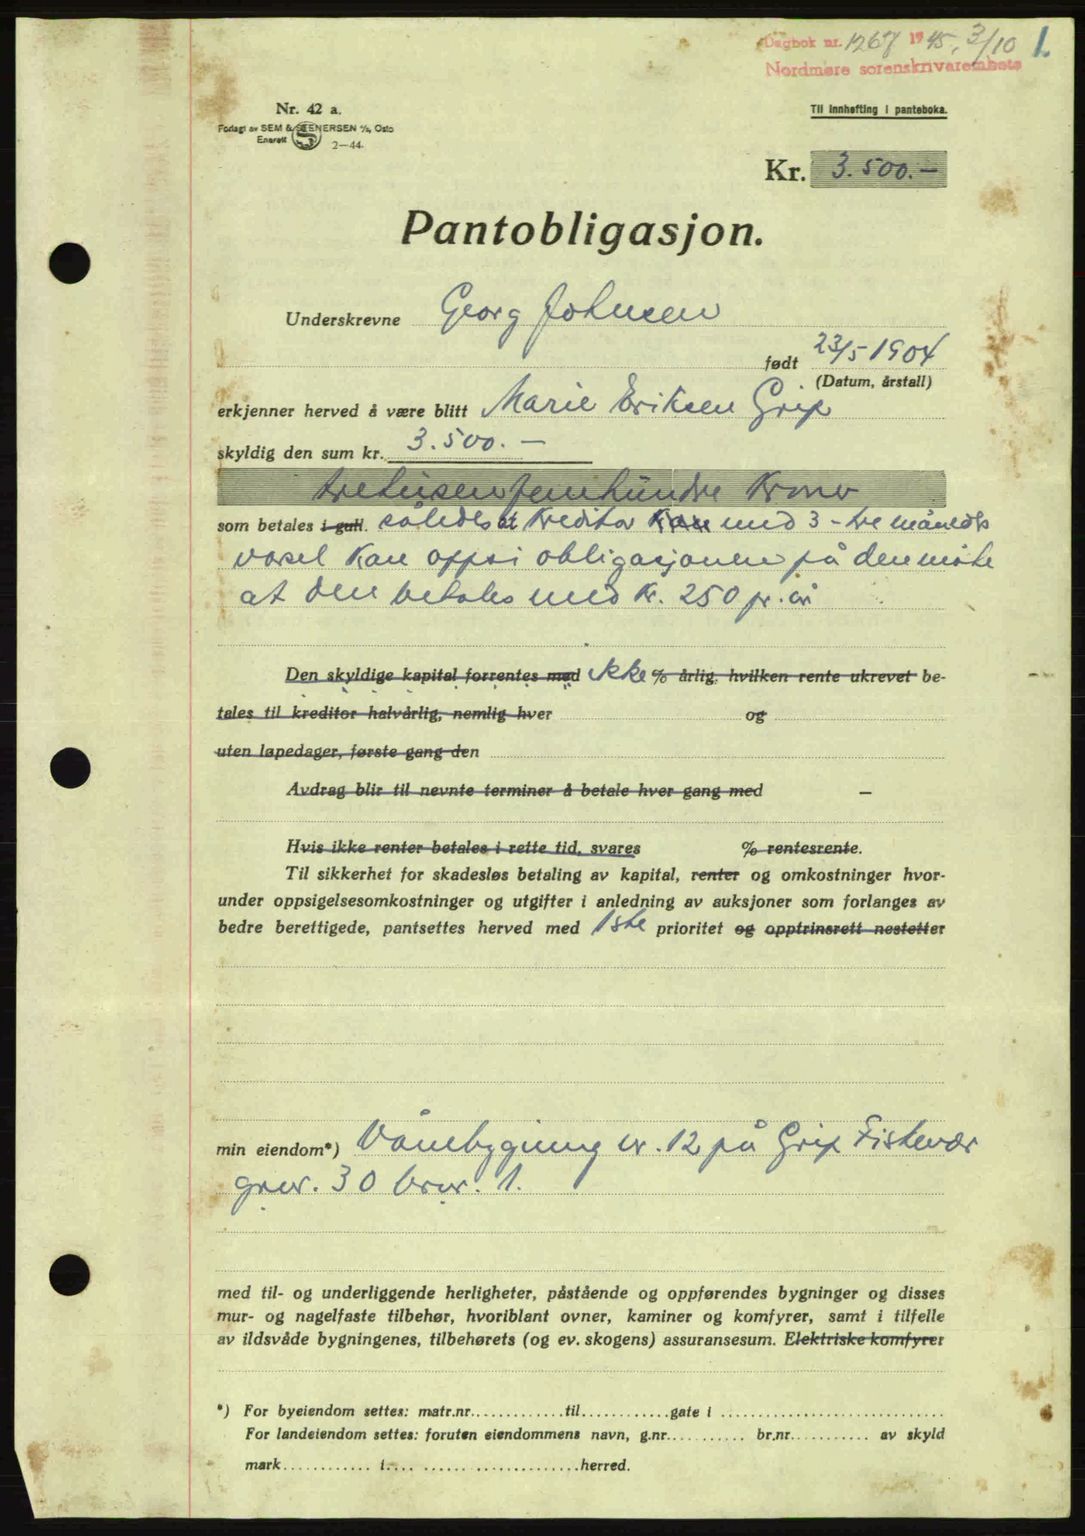 Dagbok nr. 1267 1945, 3/10 1.
Nordmøre sorenskriverembete
Nr. 42 a.
Forlagt av SEM & STENERSEN A/S, Oslo
Enerett
S
2—44.
Til innhefting i panteboka.
Kr. 3.500.—
Pantobligasjon.
Underskrevne Georg Johnsen
født 23/5 1904
(Datum, årstall)
erkjenner herved å være blitt Marie Eriksen Grip
skyldig den sum kr. 3.500.—
tretusenfemhundre Kroner
som betales i gull. således at Kreditor Kan med 3 - tre måneds
varsel Kan oppsi obligasjonen på den måte
at den betales med Kr. 250 pr. år
Den skyldige kapital forrentes med ikke % årlig, hvilken rente ukrevet be-
tales til kreditor halvårlig, nemlig hver og
uten løpedager, første gang den
Avdrag blir til nevnte terminer å betale hver gang med —
Hvis ikke renter betales i rette tid, svares % rentesrente.
Til sikkerhet for skadesløs betaling av kapital, renter og omkostninger hvor-
under oppsigelsesomkostninger og utgifter i anledning av auksjoner som forlanges av
bedre berettigede, pantsettes herved med 1ste prioritet og opptrinsrett nestetter
min eiendom*) Vånebygning nr. 12 på Grip Fiskevær
gnr. 30 bnr. 1.
med til- og underliggende herligheter, påstående og oppførendes bygninger og disses
mur- og nagelfaste tilbehør, hvoriblant ovner, kaminer og komfyrer, samt i tilfelle
av ildsvåde bygningenes, tilbehørets (og ev. skogens) assuransesum. Elektriske komfyrer
*) For byeiendom settes: matr.nr.............til.............gate i ................................
For landeiendom settes: foruten eiendommens navn, g.nr........... br.nr........... av skyld
mark............ i.... ......................herred.